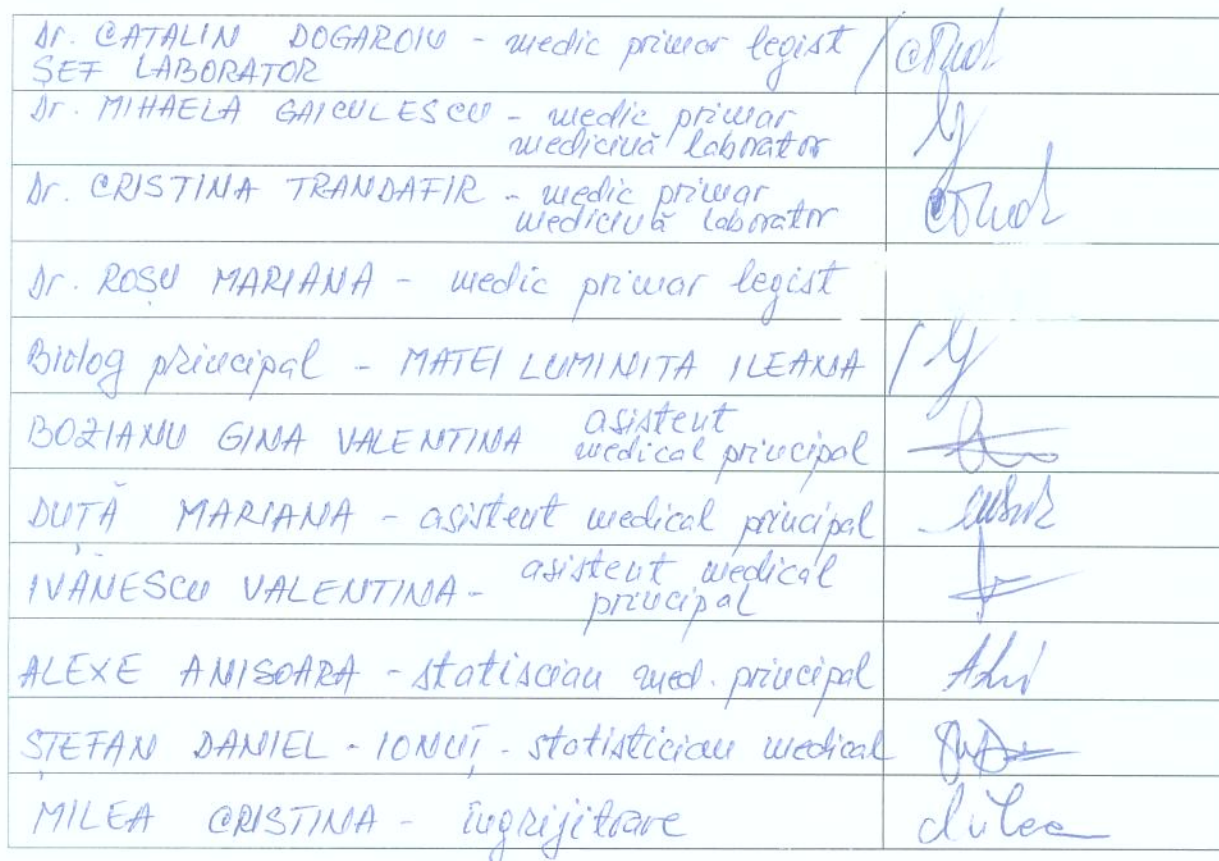 Dr. CATALIN DOGAROIU - medic primar legist /
ȘEF LABORATOR
Dr. MIHAELA GAICULESCU - medic primar
medicină laborator
Dr. CRISTINA TRANDAFIR - medic primar
medicină laborator
Dr. ROȘU MARIANA - medic primar legist
Biolog principal - MATEI LUMINITA ILEANA /
BOZIANU GINA VALENTINA asistent
medical principal
DUȚĂ MARIANA - asistent medical principal
IVĂNESCU VALENTINA - asistent medical
principal
ALEXE ANISOARA - statisciau med. principal
ȘTEFAN DANIEL - IONUȚ - statistician medical
MILEA CRISTINA - îngrijitoare